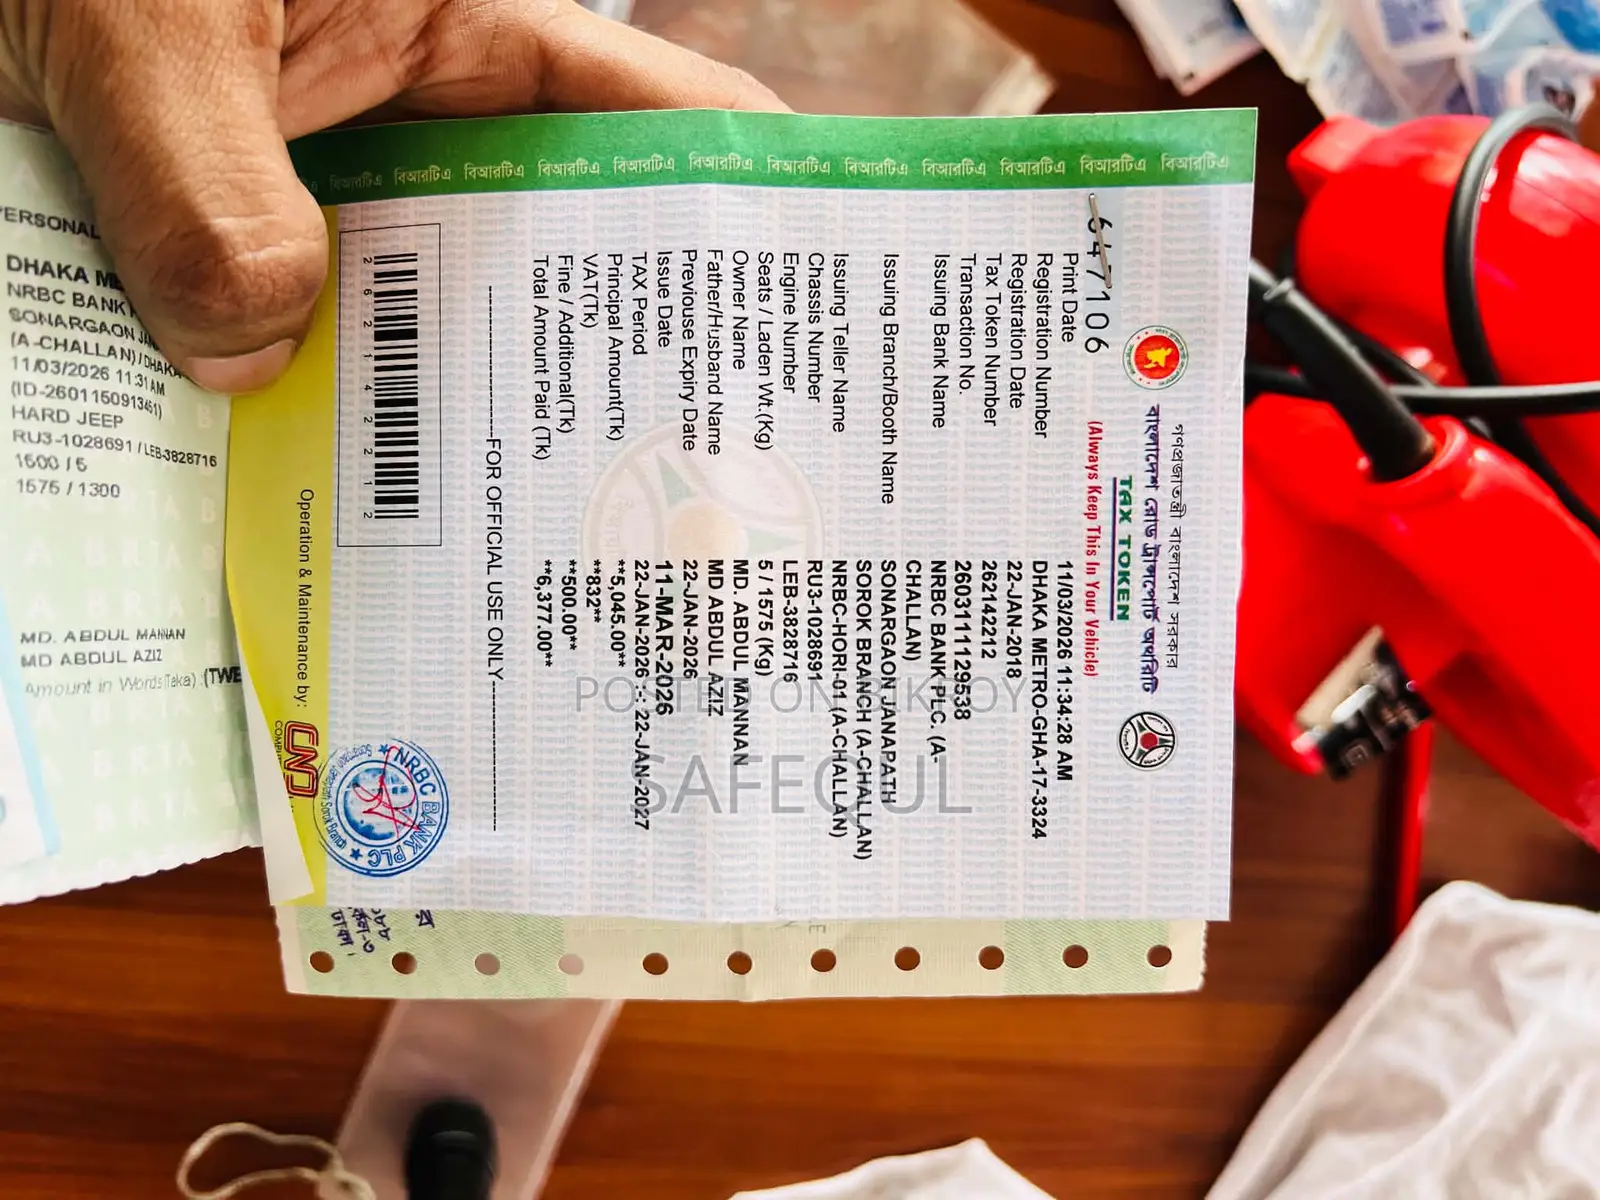 বিআরটিএ বিআরটিএ বিআরটিএ বিআরটিএ বিআরটিএ বিআরটিএ বিআরটিএ বিআরটিএ বিআরটিএ বিআরটিএ বিআরটিএ বিআরটিএ
গণপ্রজাতন্ত্রী বাংলাদেশ সরকার
বাংলাদেশ রোড ট্রান্সপোর্ট অথরিটি
TAX TOKEN
(Always Keep This In Your Vehicle)
6471106
Print Date 11/03/2026 11:34:28 AM
Registration Number DHAKA METRO-GHA-17-3324
Registration Date 22-JAN-2018
Tax Token Number 262142212
Transaction No. 2603111129538
Issuing Bank Name NRBC BANK PLC. (A-
CHALLAN)
Issuing Branch/Booth Name SONARGAON JANAPATH
SOROK BRANCH (A-CHALLAN)
Issuing Teller Name NRBC-HORI-01 (A-CHALLAN)
Chassis Number RU3-1028691
Engine Number LEB-3828716
Seats / Laden Wt.(Kg) 5 / 1575 (Kg)
Owner Name MD. ABDUL MANNAN
Father/Husband Name MD ABDUL AZIZ
Previouse Expiry Date 22-JAN-2026
Issue Date 11-MAR-2026
TAX Period 22-JAN-2026 :-: 22-JAN-2027
Principal Amount(Tk) **5,045.00**
VAT(Tk) **832**
Fine / Additional(Tk) **500.00**
Total Amount Paid (Tk) **6,377.00**
FOR OFFICIAL USE ONLY
2 6 2 1 4 2 2 1 2
Operation & Maintenance by:
CNS
NRBC BANK PLC
PERSONAL
DHAKA
NRBC BANK
SONARGAON
(A-CHALLAN) / DHAKA
11/03/2026 11:31 AM
(ID-2601150913451)
HARD JEEP
RU3-1028691 / LEB-3828716
1500 / 5
1575 / 1300
MD. ABDUL MANNAN
MD ABDUL AZIZ
Amount in Words(Taka) :(TWE
POSTED ON BIKROY
SAFEQUL